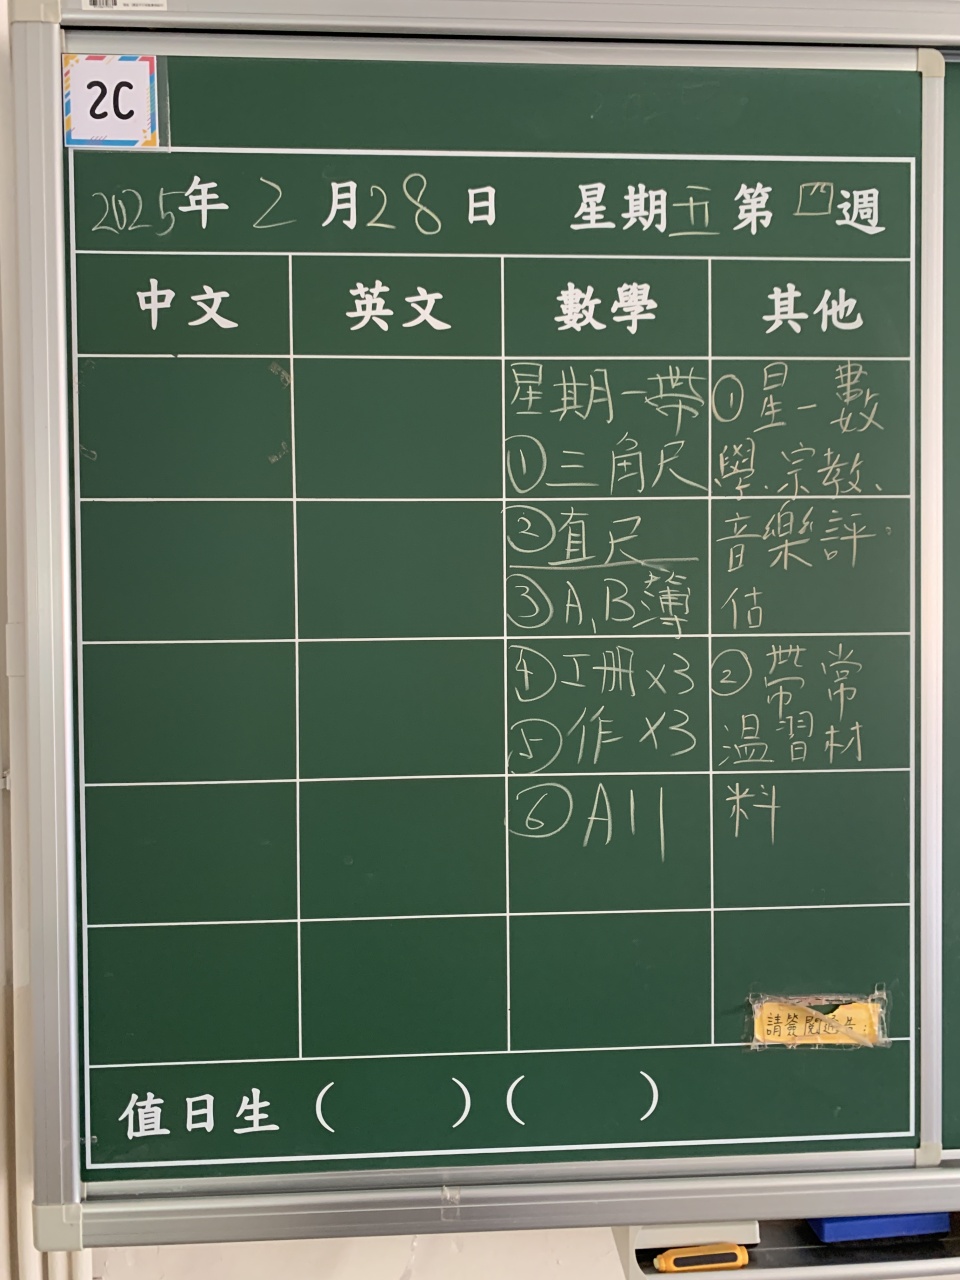 2C
2025年 2月28日 星期五 第四週
中文 英文 數學 其他
星期一帶
①三角尺
②直尺
③A、B簿
④工冊x3
⑤作x3
⑥A11
①星一數
學、宗教、
音樂評
估
②帶常
溫習材
料
請簽閱通告:
值日生( )( )